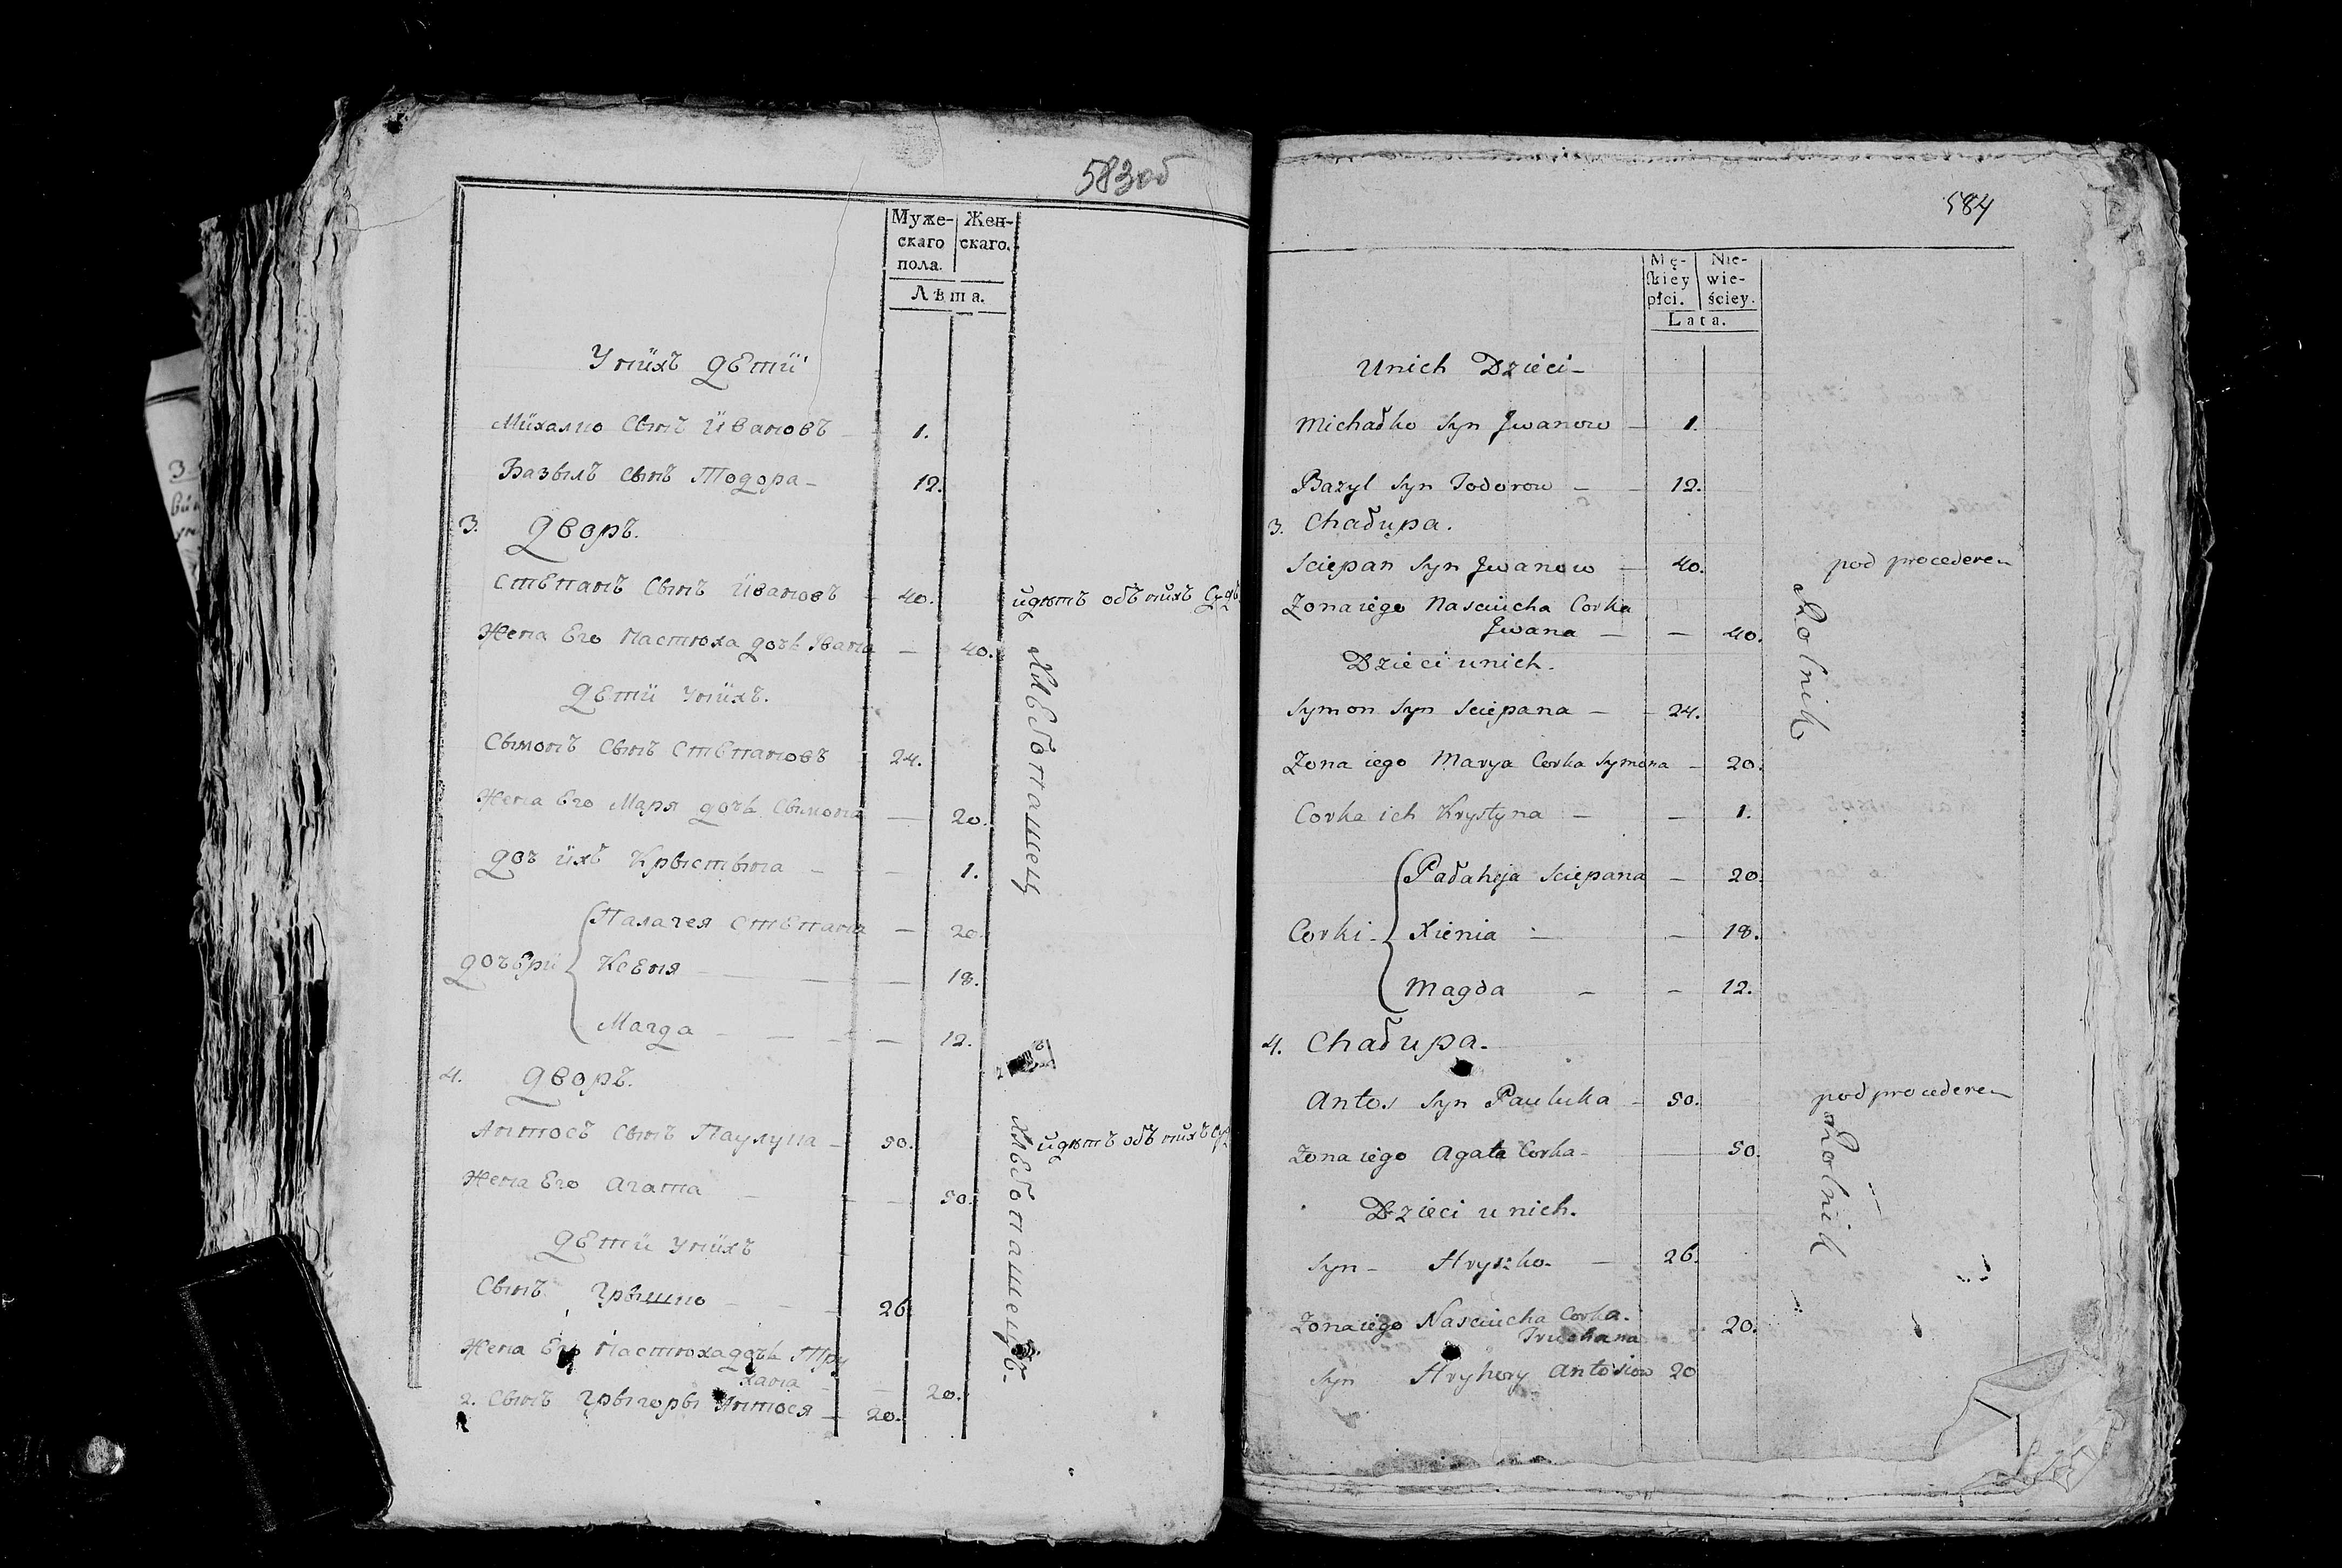 583об
Муже- Жен-
скаго скаго.
пола.
Лѣта.
У нихъ дети
Михалко Сынъ Ивановъ — 1.
Базылъ сынъ Тодора — 12.
3. дворъ.
Степанъ Сынъ Ивановъ — 40. идетъ объ нихъ Судъ
Жена Его Настюха дочь Ивана — 40.
Дети у нихъ.
Сымонъ Сынъ Степановъ 24.
Жена Его Маря дочь Сымона — 20.
доч ихъ Крыстына — — 1.
Палагея Степана — 20.
дочери Ксеня — — — 18.
Магда — — — — 12.
Хлебопашец
4. дворъ.
Антосъ Сынъ Паулука — 50. идетъ объ нихъ
Жена Его Агата — — 50.
Дети у нихъ
Сынъ Грышко — — 26.
Жена Его Настюха дочь Тру
хана — — 20.
2. Сынъ Грыгоры Антося — 20.
Хлебопашецъ.
584
Mę- Nie-
skiey wie-
płci. ściey.
Lata.
Unich Dzieci —
Michałko Syn Jwanow — 1.
Bazyl Syn Todorow — 12.
3. Chałupa.
Sciepan Syn Jwanow — 40. pod procederem
Zona iego Nasciucha Corka
Jwana — — 40.
Dzieci unich.
Symon Syn Sciepana — 24.
Zona iego Marya Corka Symona — 20.
Corka ich Krystyna — — 1.
Pałahija Sciepana — 20.
Corki — Xienia — — 18.
Magda — — 12.
Rolnik
4. Chałupa.
Antos Syn Pauluka — 50. pod procederem
Zona iego Agata Corka — 50.
Dzieci unich.
Syn — Hryszko — 26.
Zona iego Nasciucha Corka.
Truchana 20.
Syn Hryhory Antosiow 20
Rolnik